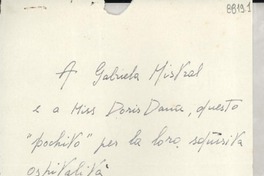 88191
A Gabriela Mistral
e a Miss Doris Dana, questo
"pochito" per la loro squisita
ospitalità